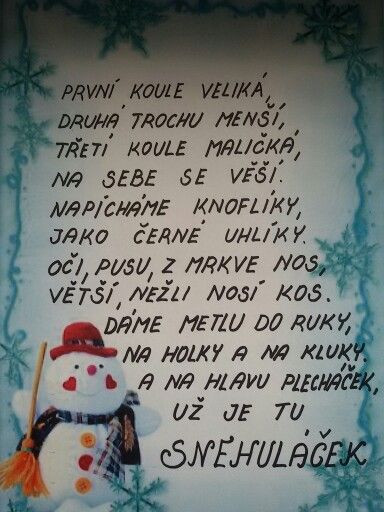 PRVNÍ KOULE VELIKÁ,
DRUHÁ TROCHU MENŠÍ,
TŘETÍ KOULE MALIČKÁ,
NA SEBE SE VĚŠÍ.
NAPÍCHÁME KNOFLÍKY,
JAKO ČERNÉ UHLÍKY.
OČI, PUSU, Z MRKVE NOS,
VĚTŠÍ, NEŽLI NOSÍ KOS.
DÁME METLU DO RUKY,
NA HOLKY A NA KLUKY.
A NA HLAVU PLECHÁČEK,
UŽ JE TU
SNEHULÁČEK